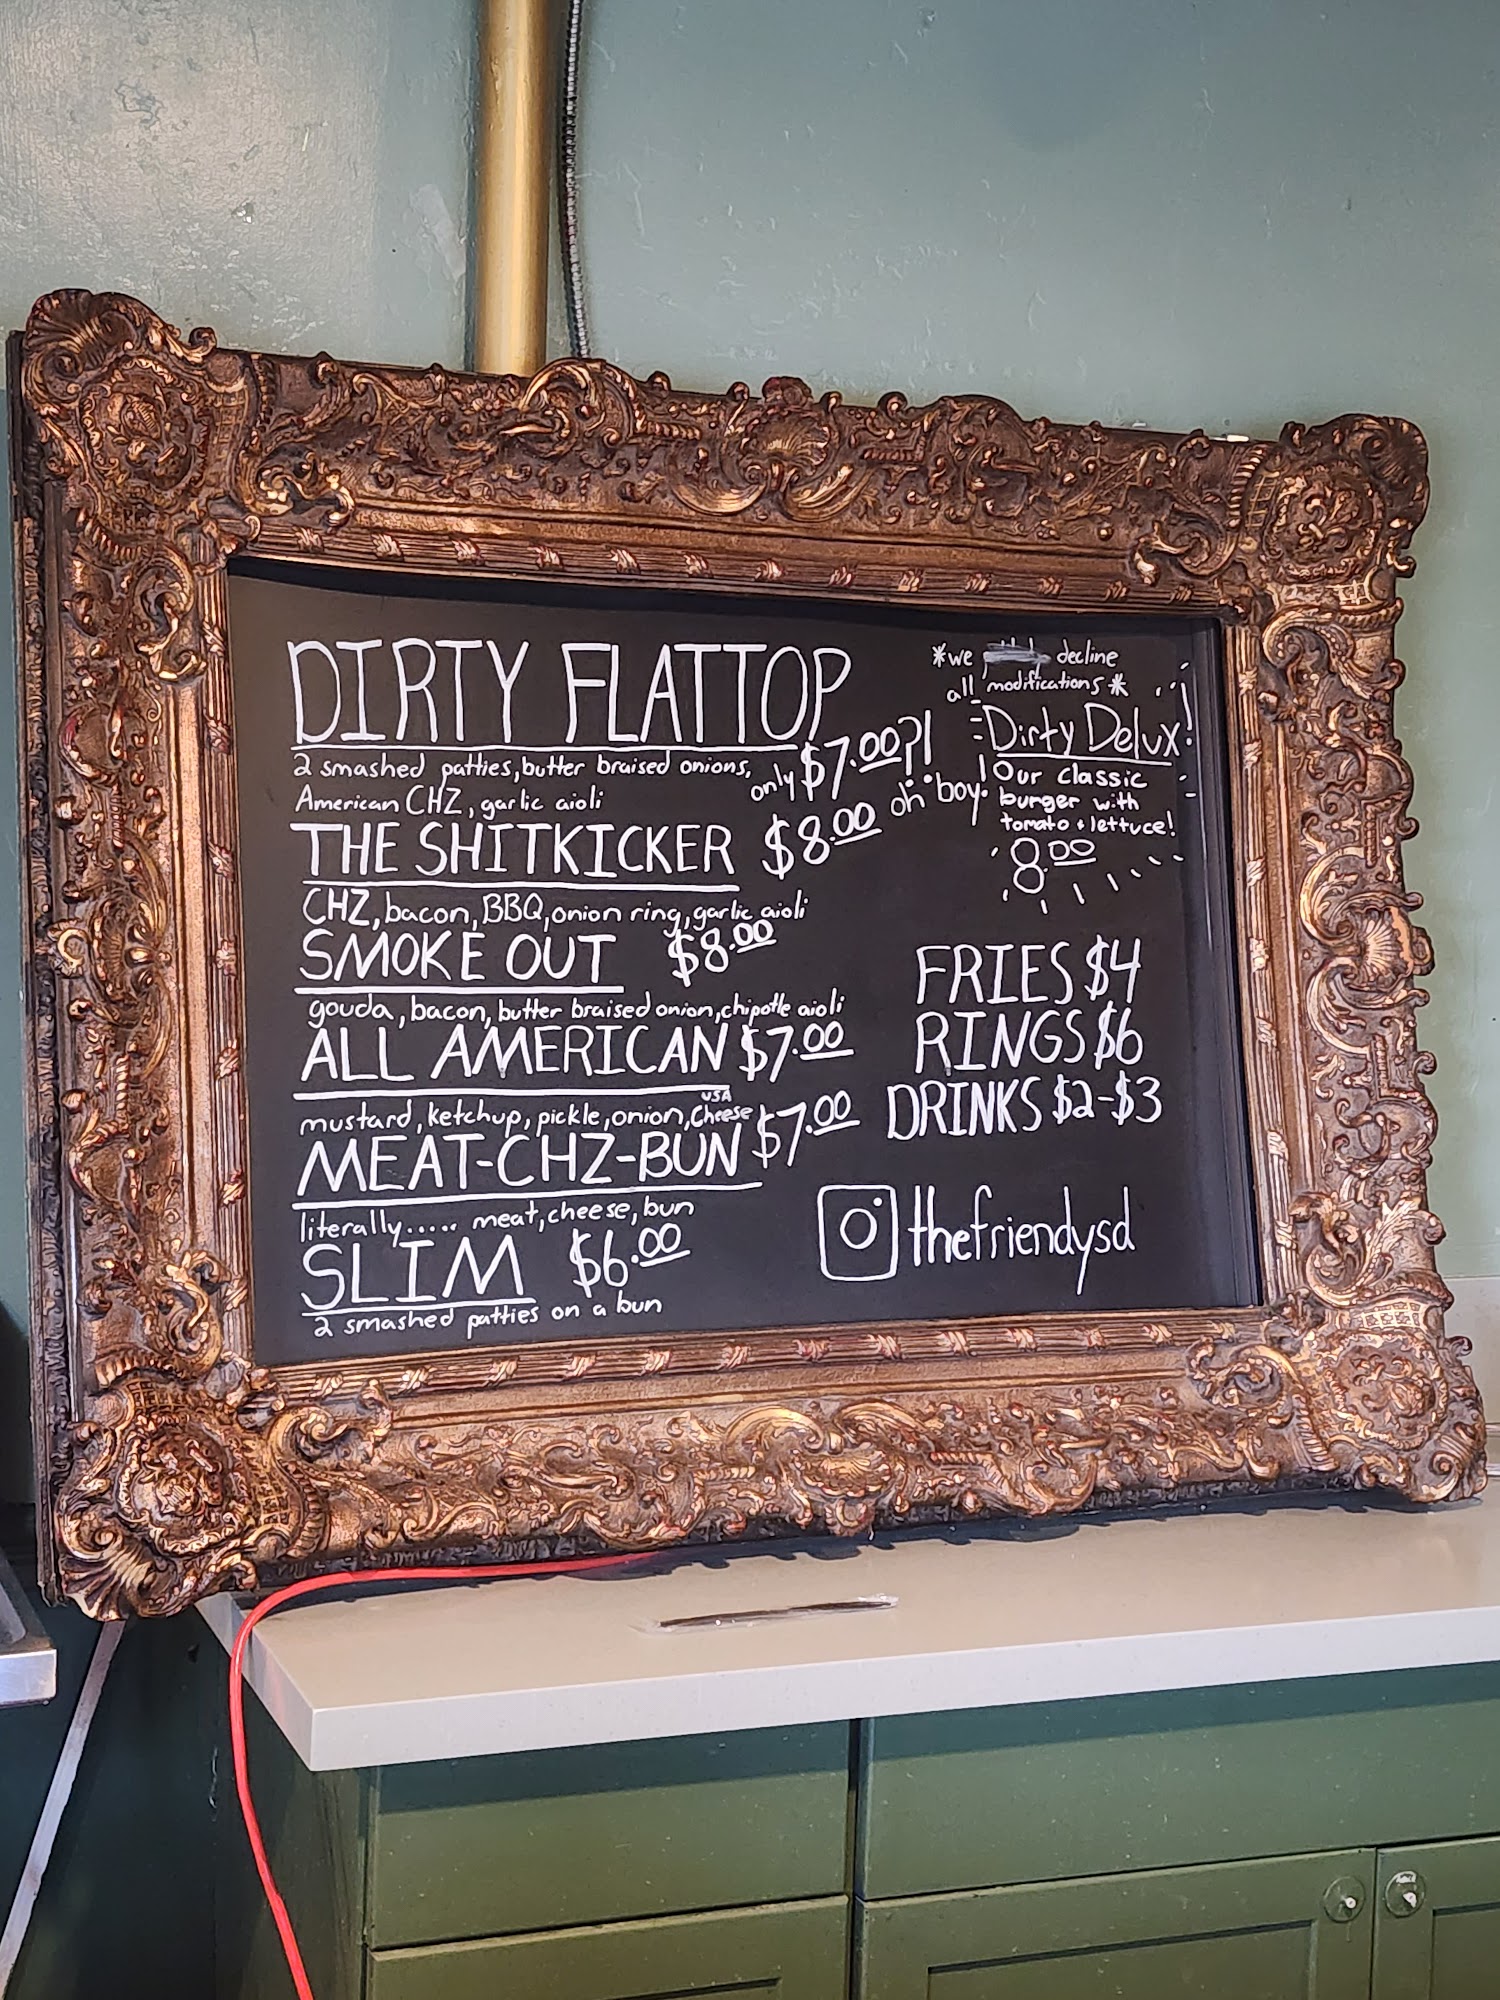 DIRTY FLATTOP
2 smashed patties, butter braised onions,
American CHZ, garlic aioli
only $7.00?!
oh boy.
THE SHITKICKER $8.00
CHZ, bacon, BBQ, onion ring, garlic aioli
SMOKE OUT $8.00
gouda, bacon, butter braised onion, chipotle aioli
ALL AMERICAN $7.00
mustard, ketchup, pickle, onion, USA Cheese
MEAT-CHZ-BUN $7.00
literally..... meat, cheese, bun
SLIM $6.00
2 smashed patties on a bun
*we decline
all modifications*
Dirty Delux!
Our classic
burger with
tomato + lettuce!
8.00
FRIES $4
RINGS $6
DRINKS $2-$3
thefriendysd